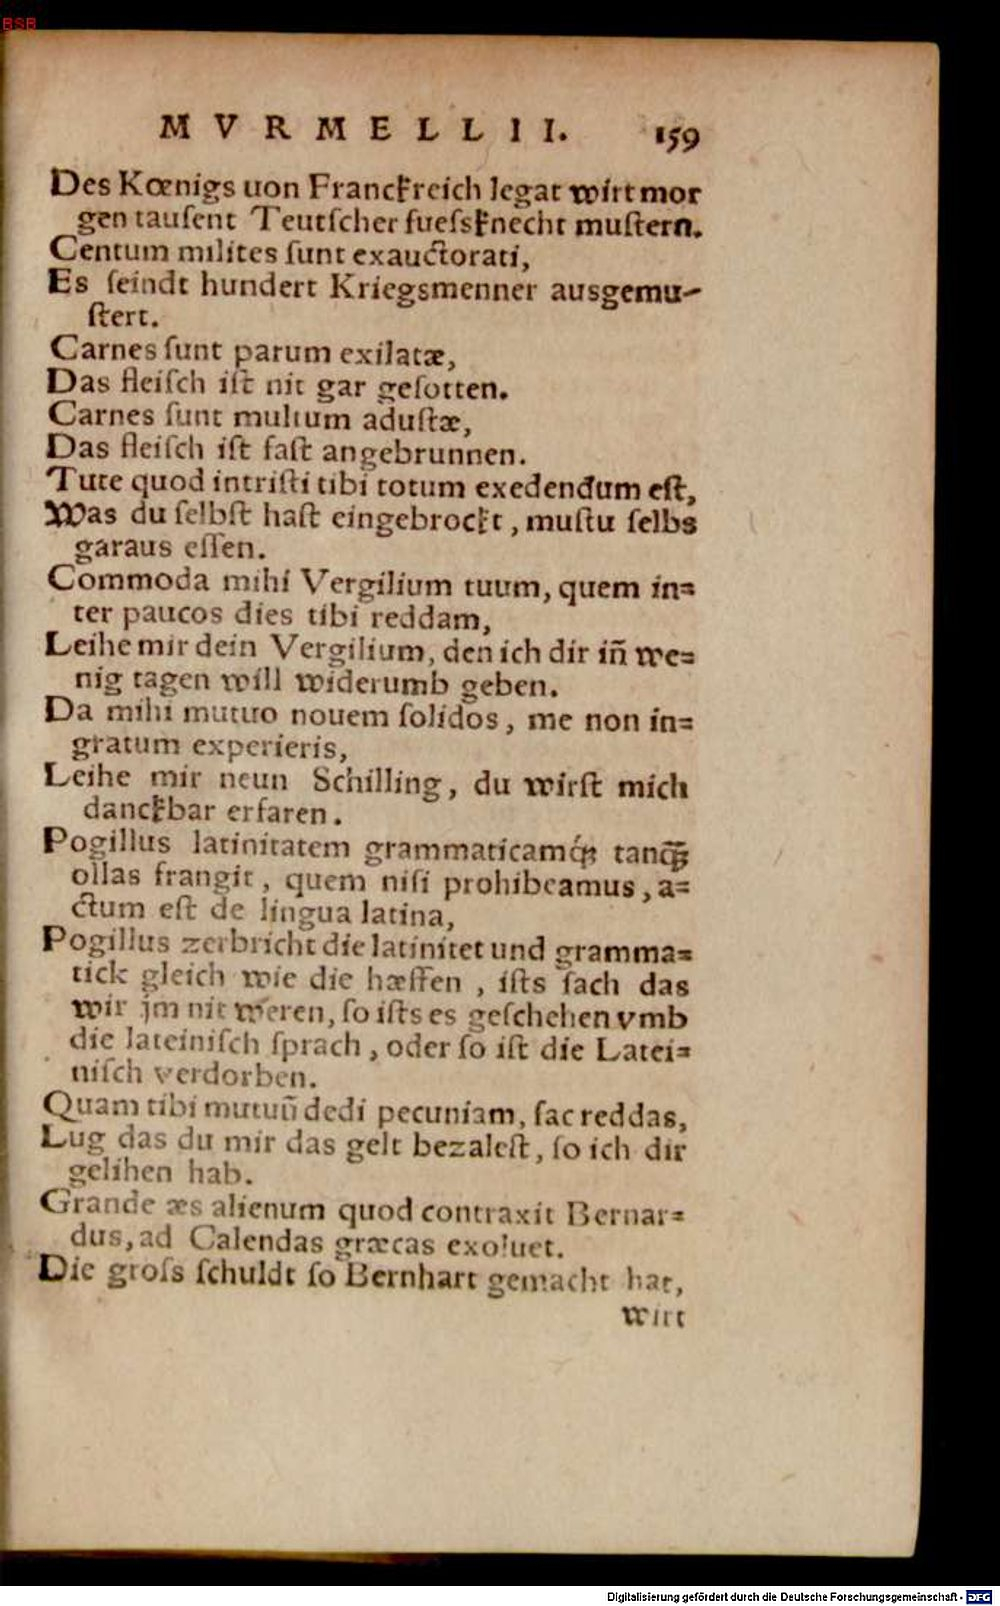 BSB
MVRMELLII. 159
Des Kœnigs uon Franckreich legat wirt mor
gen tausent Teutscher fuessknecht mustern.
Centum milites sunt exauctorati,
Es seindt hundert Kriegsmenner ausgemu-
stert.
Carnes sunt parum exilatæ,
Das fleisch ist nit gar gesotten.
Carnes sunt multum adustæ,
Das fleisch ist fast angebrunnen.
Tute quod intristi tibi totum exedendum est,
Was du selbst hast eingebrockt, mustu selbs
garaus essen.
Commoda mihi Vergilium tuum, quem in=
ter paucos dies tibi reddam,
Leihe mir dein Vergilium, den ich dir in̄ we=
nig tagen will widerumb geben.
Da mihi mutuo nouem solidos, me non in=
gratum experieris,
Leihe mir neun Schilling, du wirst mich
danckbar erfaren.
Pogillus latinitatem grammaticamq́ꝫ tanq̃ꝫ
ollas frangit, quem nisi prohibeamus, a=
ctum est de lingua latina,
Pogillus zerbricht die latinitet und gramma=
tick gleich wie die hæffen, ists sach das
wir jm nit weren, so ists es geschehen vmb
die lateinisch sprach, oder so ist die Latei=
nisch verdorben.
Quam tibi mutuū dedi pecuniam, fac reddas,
Lug das du mir das gelt bezalest, so ich dir
gelihen hab.
Grande æs alienum quod contraxit Bernar=
dus, ad Calendas græcas exoluet.
Die gross schuldt so Bernhart gemacht hat,
wirt
Digitalisierung gefördert durch die Deutsche Forschungsgemeinschaft - DFG